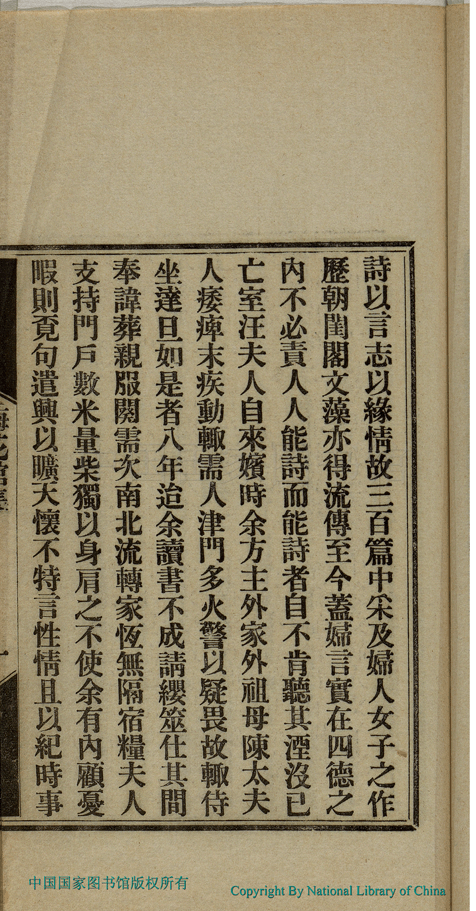 詩以言志以緣情故三百篇中采及婦人女子之作
歷朝閨閣文藻亦得流傳至今蓋婦言實在四德之
內不必責人人能詩而能詩者自不肯聽其湮沒已
亡室汪夫人自來嬪時余方主外家外祖母陳太夫
人痿痺末疾動輒需人津門多火警以疑畏故輒侍
坐達旦如是者八年迨余讀書不成請纓筮仕其間
奉諱葬親服闋需次南北流轉家恆無隔宿糧夫人
支持門戶數米量柴獨以身肩之不使余有內顧憂
暇則覓句遣興以曠大懷不特言性情且以紀時事
中国国家图书馆版权所有
Copyright By National Library of China